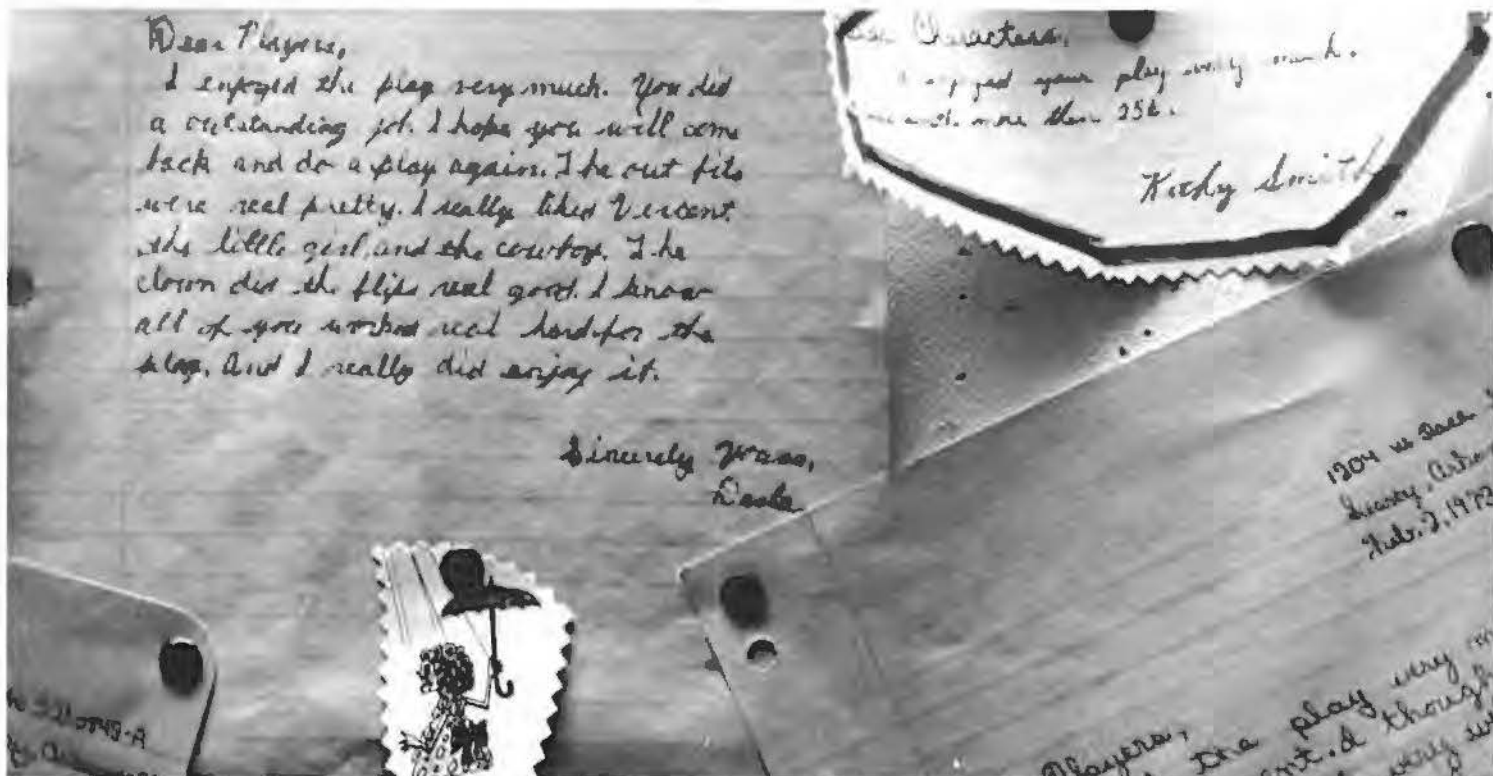 Dear Players,
I enjoyed the play very much. You did
a outstanding job. I hope you will come
back and do a play again. The out fits
were real pretty. I really liked Vincent
the little girl, and the cowboy. The
clown did the flips real good. I know
all of you worked real hard for the
play. And I really did enjoy it.
Sincerely Yours,
Characters,
enjoyed your play very much.
more than 25¢.
Kathy Smith
1304 W
Searcy,
Feb. 2, 1973
Players,
the play very
thought
very